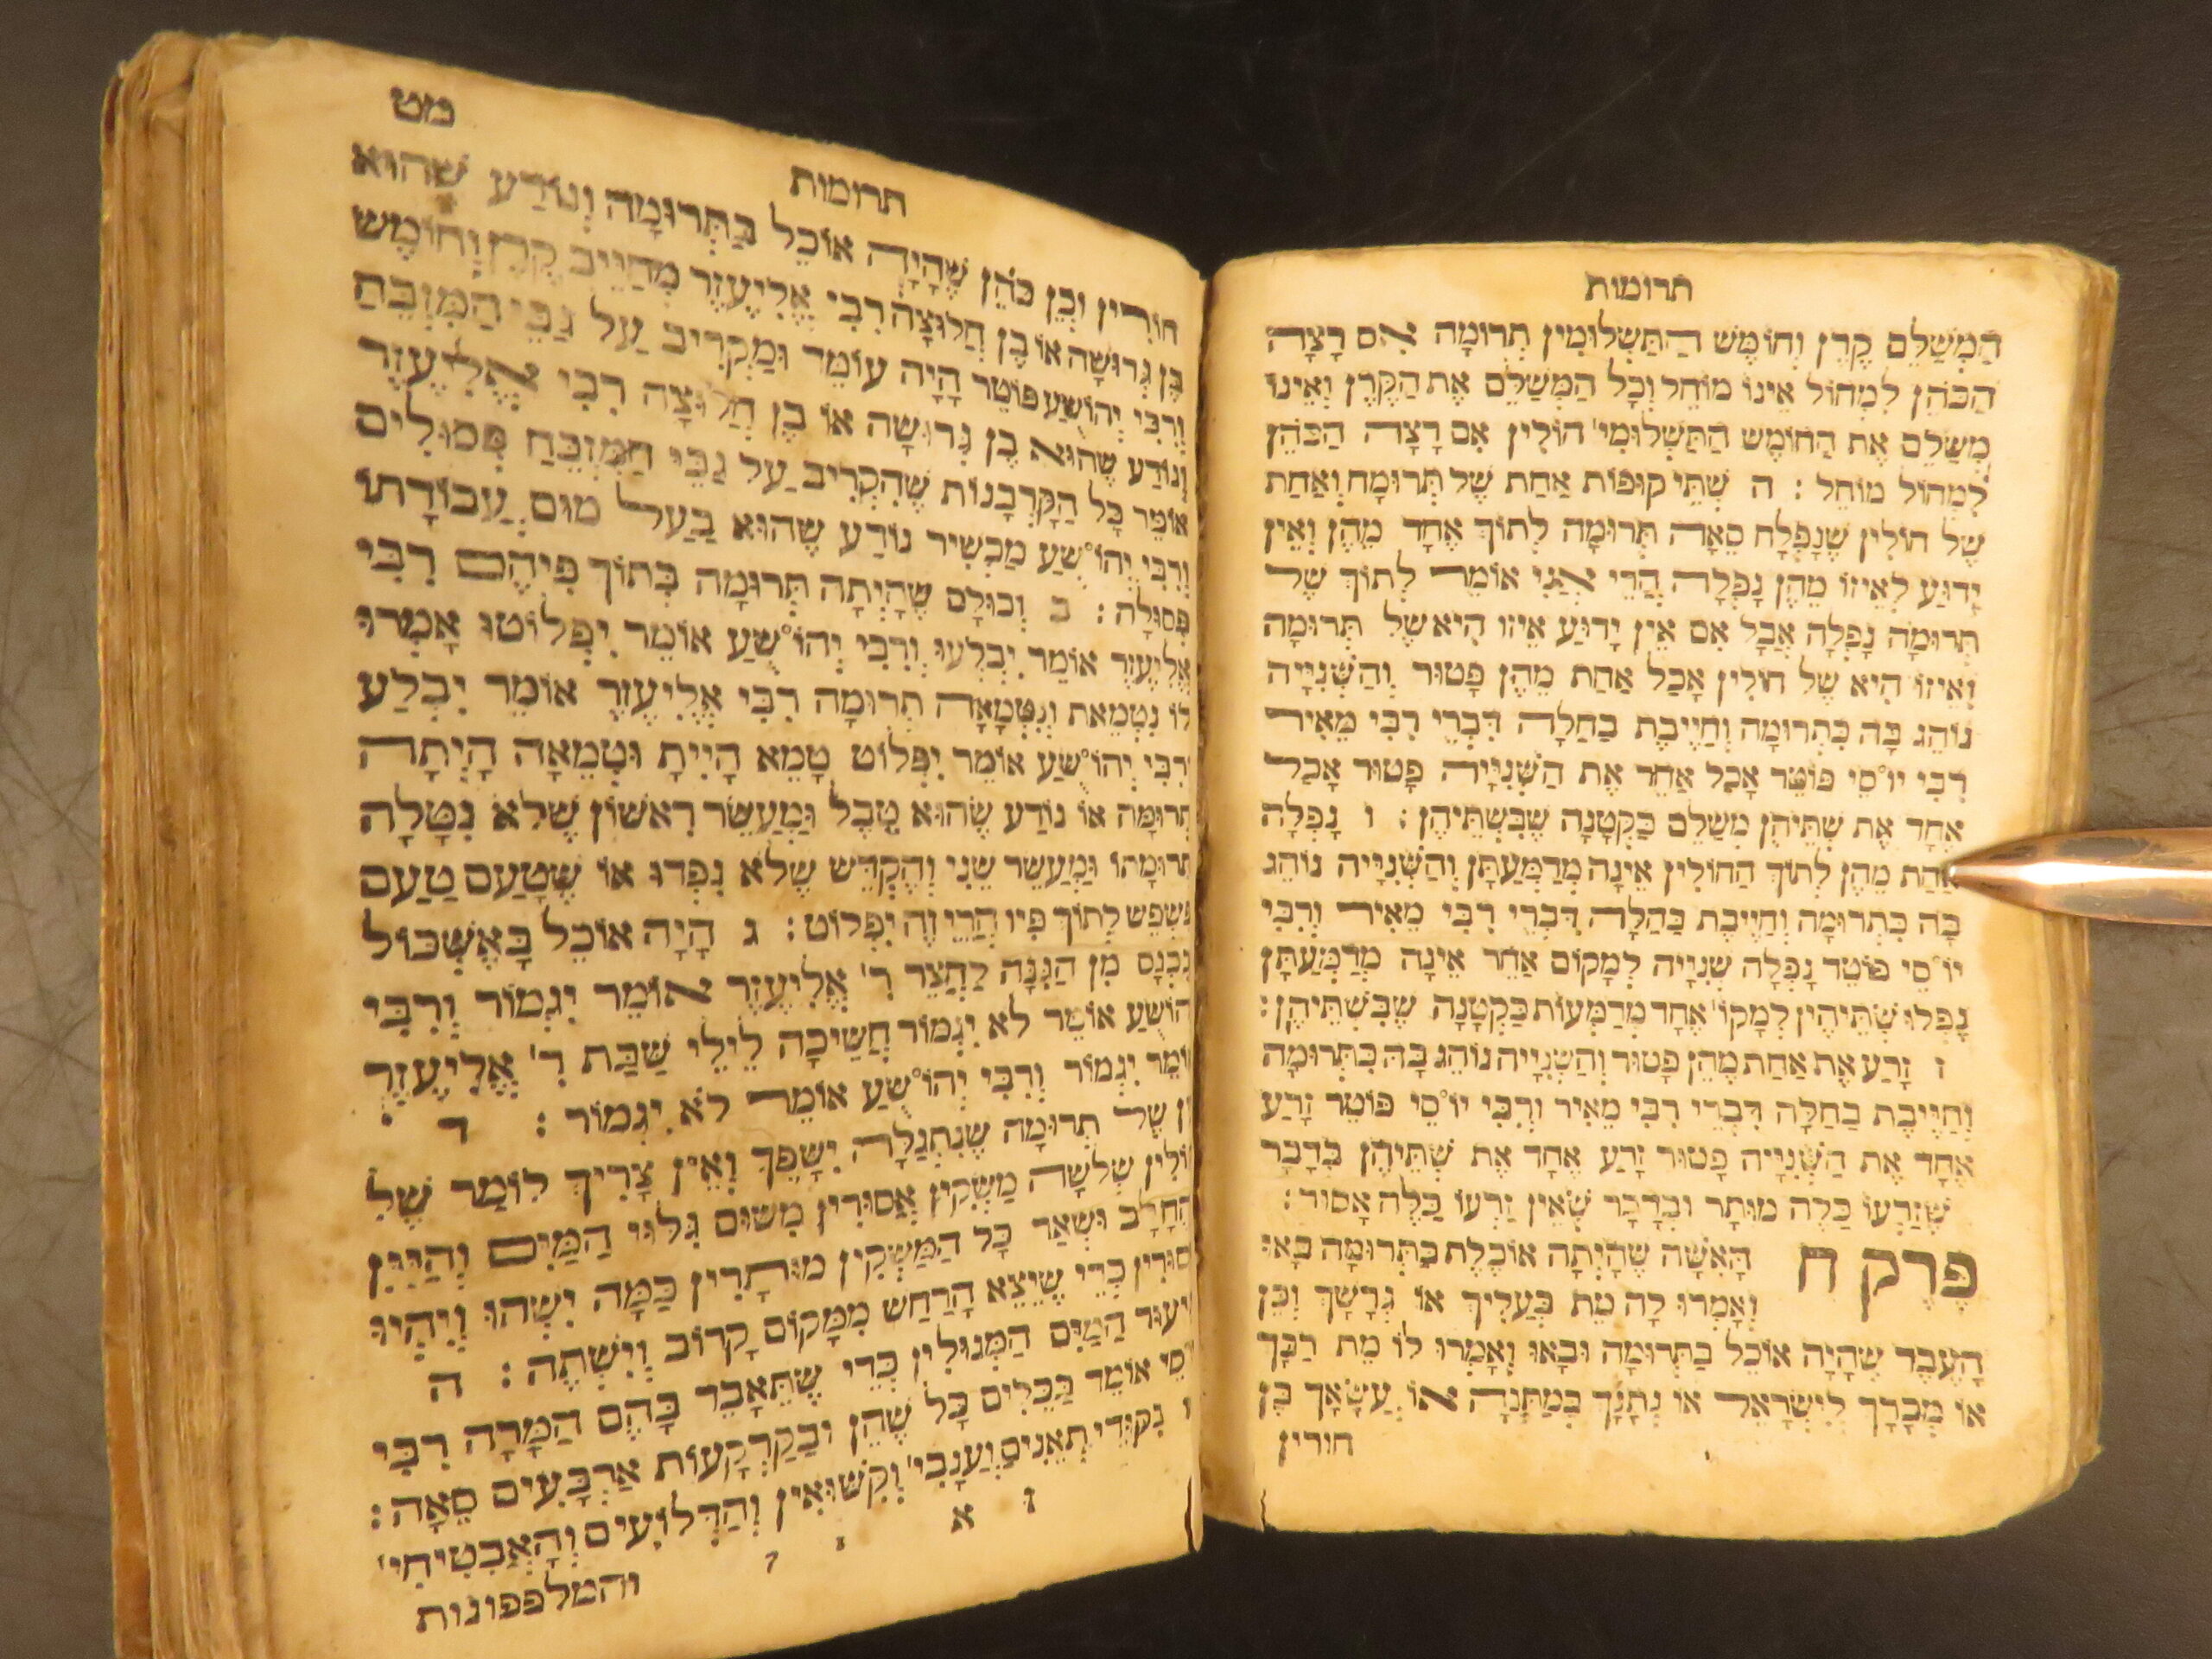 תרומות
הַמְשַׁלֵּם קֶרֶן וְחוֹמֶשׁ הַתַּשְׁלוּמִין תְּרוּמָה אִם רָצָה
הַכֹּהֵן לִמְחוֹל אֵינוֹ מוֹחֵל וְכָל הַמְשַׁלֵּם אֶת הַקֶּרֶן וְאֵינוֹ
מְשַׁלֵּם אֶת הַחוֹמֶשׁ הַתַּשְׁלוּמִי' חוֹלִין אִם רָצָה הַכֹּהֵן
לִמְחוֹל מוֹחֵל : ה שְׁתֵּי קוּפּוֹת אַחַת שֶׁל תְּרוּמָה וְאַחַת
שֶׁל חוֹלִין שֶׁנָּפְלָה סְאָה תְּרוּמָה לְתוֹךְ אֶחָד מֵהֶן וְאֵין
יָדוּעַ לְאֵיזוֹ מֵהֶן נָפְלָה הֲרֵי אֲנִי אוֹמֵר לְתוֹךְ שֶׁל
תְּרוּמָה נָפְלָה אֲבָל אִם אֵין יָדוּעַ אֵיזוֹ הִיא שֶׁל תְּרוּמָה
וְאֵיזוֹ הִיא שֶׁל חוֹלִין אָכַל אַחַת מֵהֶן פָּטוּר וְהַשְּׁנִיָּיה
נוֹהֵג בָּהּ כִּתְרוּמָה וְחַיֶּיבֶת בַּחַלָּה דִּבְרֵי רַבִּי מֵאִיר
רַבִּי יוֹסֵי פּוֹטֵר אָכַל אַחֵר אֶת הַשְּׁנִיָּיה פָּטוּר אָכַל
אֶחָד אֶת שְׁתֵּיהֶן מְשַׁלֵּם כַּקְּטַנָּה שֶׁבִּשְׁתֵּיהֶן : ו נָפְלָה
אַחַת מֵהֶן לְתוֹךְ הַחוֹלִין אֵינָהּ מְדַמַּעְתָּן וְהַשְּׁנִיָּיה נוֹהֵג
בָּהּ כִּתְרוּמָה וְחַיֶּיבֶת בַּחַלָּה דִּבְרֵי רַבִּי מֵאִיר וְרַבִּי
יוֹסֵי פּוֹטֵר נָפְלָה שְׁנִיָּיה לְמָקוֹם אַחֵר אֵינָהּ מְדַמַּעְתָּן
נָפְלוּ שְׁתֵּיהֶין לְמָקוֹ' אֶחָד מְדַמְּעוֹת כַּקְּטַנָּה שֶׁבִּשְׁתֵּיהֶן :
ז זָרַע אֶת אַחַת מֵהֶן פָּטוּר וְהַשְּׁנִיָּיה נוֹהֵג בָּהּ כִּתְרוּמָה
וְחַיֶּיבֶת בַּחַלָּה דִּבְרֵי רַבִּי מֵאִיר וְרַבִּי יוֹסֵי פּוֹטֵר זָרַע
אֶחָד אֶת הַשְּׁנִיָּיה פָּטוּר זָרַע אֶחָד אֶת שְׁתֵּיהֶן בְּדָבָר
שֶׁזַּרְעוֹ כָּלֶה מוּתָר וּבְדָבָר שֶׁאֵין זַרְעוֹ כָּלֶה אָסוּר :
פֶּרֶק ח הָאִשָּׁה שֶׁהָיְתָה אוֹכֶלֶת בַּתְּרוּמָה בָּאוּ
וְאָמְרוּ לָהּ מֵת בַּעְלִיךְ אוֹ גֵּרְשָׁךְ וְכֵן
הָעֶבֶד שֶׁהָיָה אוֹכֵל בַּתְּרוּמָה וּבָאוּ וְאָמְרוּ לוֹ מֵת רַבָּךְ
אוֹ מְכָרָךְ לְיִשְׂרָאֵל אוֹ נְתָנָךְ בְּמַתָּנָה אוֹ עֲשָׂאָךְ בֶּן
חורין
מט
תרומות
חוֹרִין וְכֵן כֹּהֵן שֶׁהָיָה אוֹכֵל בַּתְּרוּמָה וְנוֹדַע שֶׁהוּא
בֶּן גְּרוּשָׁה אוֹ בֶּן חֲלוּצָה רַבִּי אֱלִיעֶזֶר מְחַיֵּיב קֶרֶן וְחוֹמֶשׁ
וְרַבִּי יְהוֹשֻׁעַ פּוֹטֵר הָיָה עוֹמֵד וּמַקְרִיב עַל גַּבֵּי הַמִּזְבֵּחַ
וְנוֹדַע שֶׁהוּא בֶן גְּרוּשָׁה אוֹ בֶן חֲלוּצָה רַבִּי אֱלִיעֶזֶר
אוֹמֵר כָּל הַקָּרְבָּנוֹת שֶׁהִקְרִיב עַל גַּבֵּי הַמִּזְבֵּחַ פְּסוּלִים
וְרַבִּי יְהוֹשֻׁעַ מַכְשִׁיר נוֹדַע שֶׁהוּא בַּעַל מוּם עֲבוֹדָתוֹ
פְּסוּלָה : ב וְכוּלָּם שֶׁהָיְתָה תְּרוּמָה בְּתוֹךְ פִּיהֶם רַבִּי
אֱלִיעֶזֶר אוֹמֵר יִבְלְעוּ וְרַבִּי יְהוֹשֻׁעַ אוֹמֵר יִפְלוֹטוּ אָמְרוּ
לוֹ נִטְמֵאת וְנִטְמְאָה תְרוּמָה רַבִּי אֱלִיעֶזֶר אוֹמֵר יִבְלַע
רַבִּי יְהוֹשֻׁעַ אוֹמֵר יִפְלוֹט טָמֵא הָיִיתָ וּטְמֵאָה הָיְתָה
תְרוּמָה אוֹ נוֹדַע שֶׁהוּא טֶבֶל וּמַעֲשֵׂר רִאשׁוֹן שֶׁלֹּא נִטְּלָה
תְרוּמָתוֹ וּמַעֲשֵׂר שֵׁנִי וְהֶקְדֵּשׁ שֶׁלֹּא נִפְדּוּ אוֹ שֶׁטָּעַם טַעַם
פִּשְׁפֵּשׁ לְתוֹךְ פִּיו הֲרֵי זֶה יִפְלוֹט : ג הָיָה אוֹכֵל בָּאֶשְׁכּוֹל
נִכְנָס מִן הַגִּנָּה לַחָצֵר ר' אֱלִיעֶזֶר אוֹמֵר יִגְמוֹר וְרַבִּי
הוֹשֻׁעַ אוֹמֵר לֹא יִגְמוֹר חֲשֵׁיכָה לֵילֵי שַׁבָּת ר' אֱלִיעֶזֶר
וֹמֵר יִגְמוֹר וְרַבִּי יְהוֹשֻׁעַ אוֹמֵר לֹא יִגְמוֹר : ד
ן שֶׁל תְּרוּמָה שֶׁנִּתְגַּלָּה יִשָּׁפֵךְ וְאֵין צָרִיךְ לוֹמַר שֶׁל
וֹלִין שְׁלֹשָׁה מַשְׁקִין אֲסוּרִין מִשּׁוּם גִּלּוּי הַמַּיִם וְהַיַּיִן
הֶחָלָב וּשְׁאָר כָּל הַמַּשְׁקִין מוּתָרִין כַּמָּה יִשְׁהוּ וְיִהְיוּ
סוּרִין כְּדֵי שֶׁיֵּצֵא הָרַחַשׁ מִמָּקוֹם קָרוֹב וְיִשְׁתֶּה : ה
יעוּר הַמַּיִם הַמְּגוּלִּין כְּדֵי שֶׁתֹּאבַד בָּהֶם הַמָּרָה רַבִּי
וֹסֵי אוֹמֵר בַּכֵּלִים כָּל שֶׁהֵן וּבַקַּרְקָעוֹת אַרְבָּעִים סְאָה :
ו נִקּוּדֵי תְאֵנִים וַעֲנָבִי' וְקִשּׁוּאִין וְהַדְּלוּעִים וְהָאֲבַטִּיחִי'
ז א
והמלפפונות